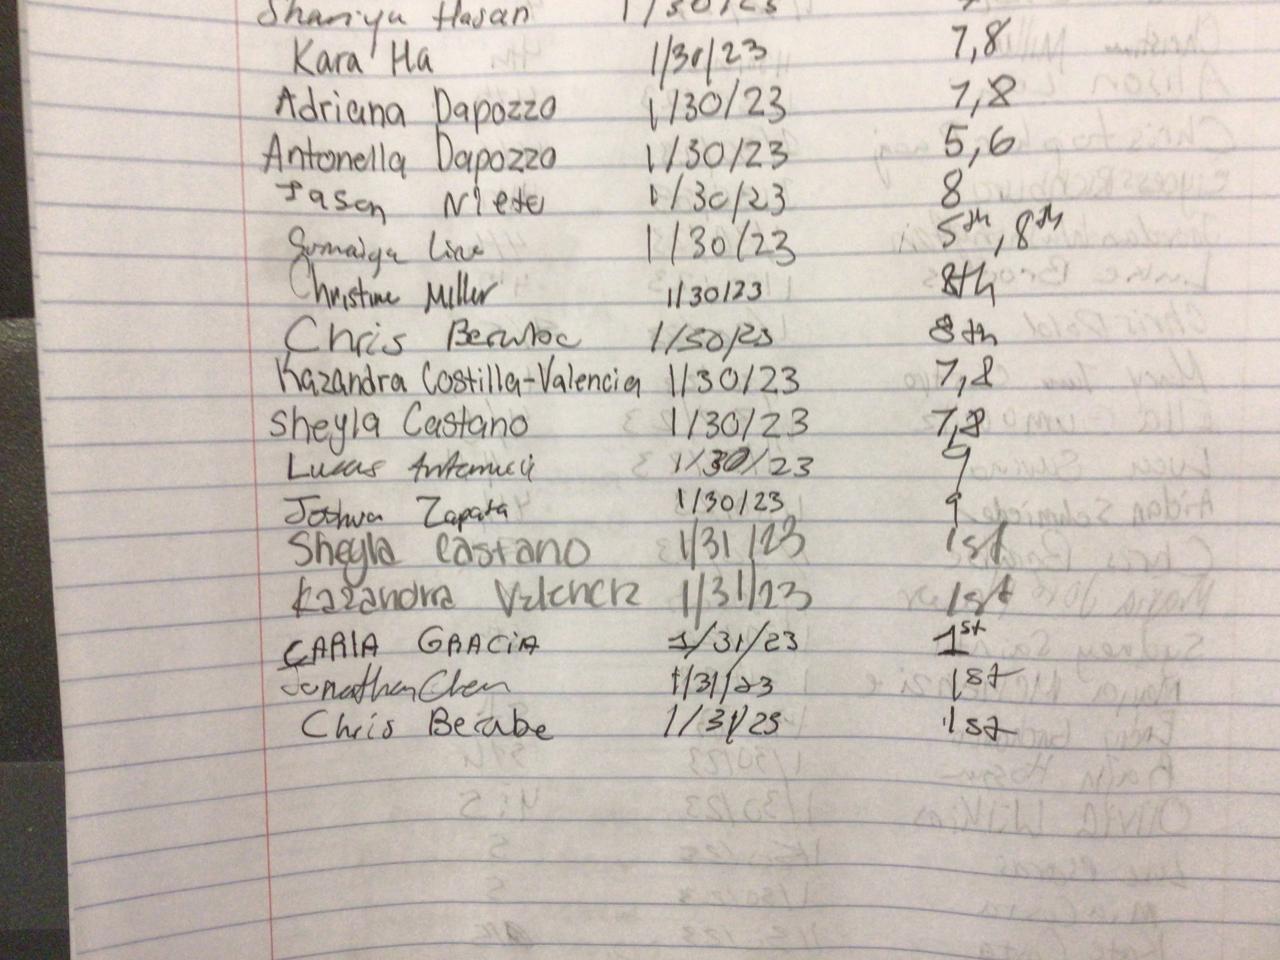 Shaniya Hasan 1/30/23
Kara Ha 1/30/23 7,8
Adriana Dapozzo 1/30/23 7,8
Antonella Dapozzo 1/30/23 5,6
Jason Nieto 1/30/23 8
Sumaiya 1/30/23 5th, 8th
Christine Miller 1/30/23 8th
Chris Berube 1/30/23 8th
Kazandra Costilla-Valencia 1/30/23 7,8
Sheyla Castano 1/30/23 7,8
Lucas 1/30/23 9
Joshua Zapata 1/30/23 9
Sheyla Castano 1/31/23 1st
Kazandra Valencia 1/31/23 1st
CARLA GRACIA 1/31/23 1st
Jonathan Chen 1/31/23 1st
Chris Berube 1/31/23 1st